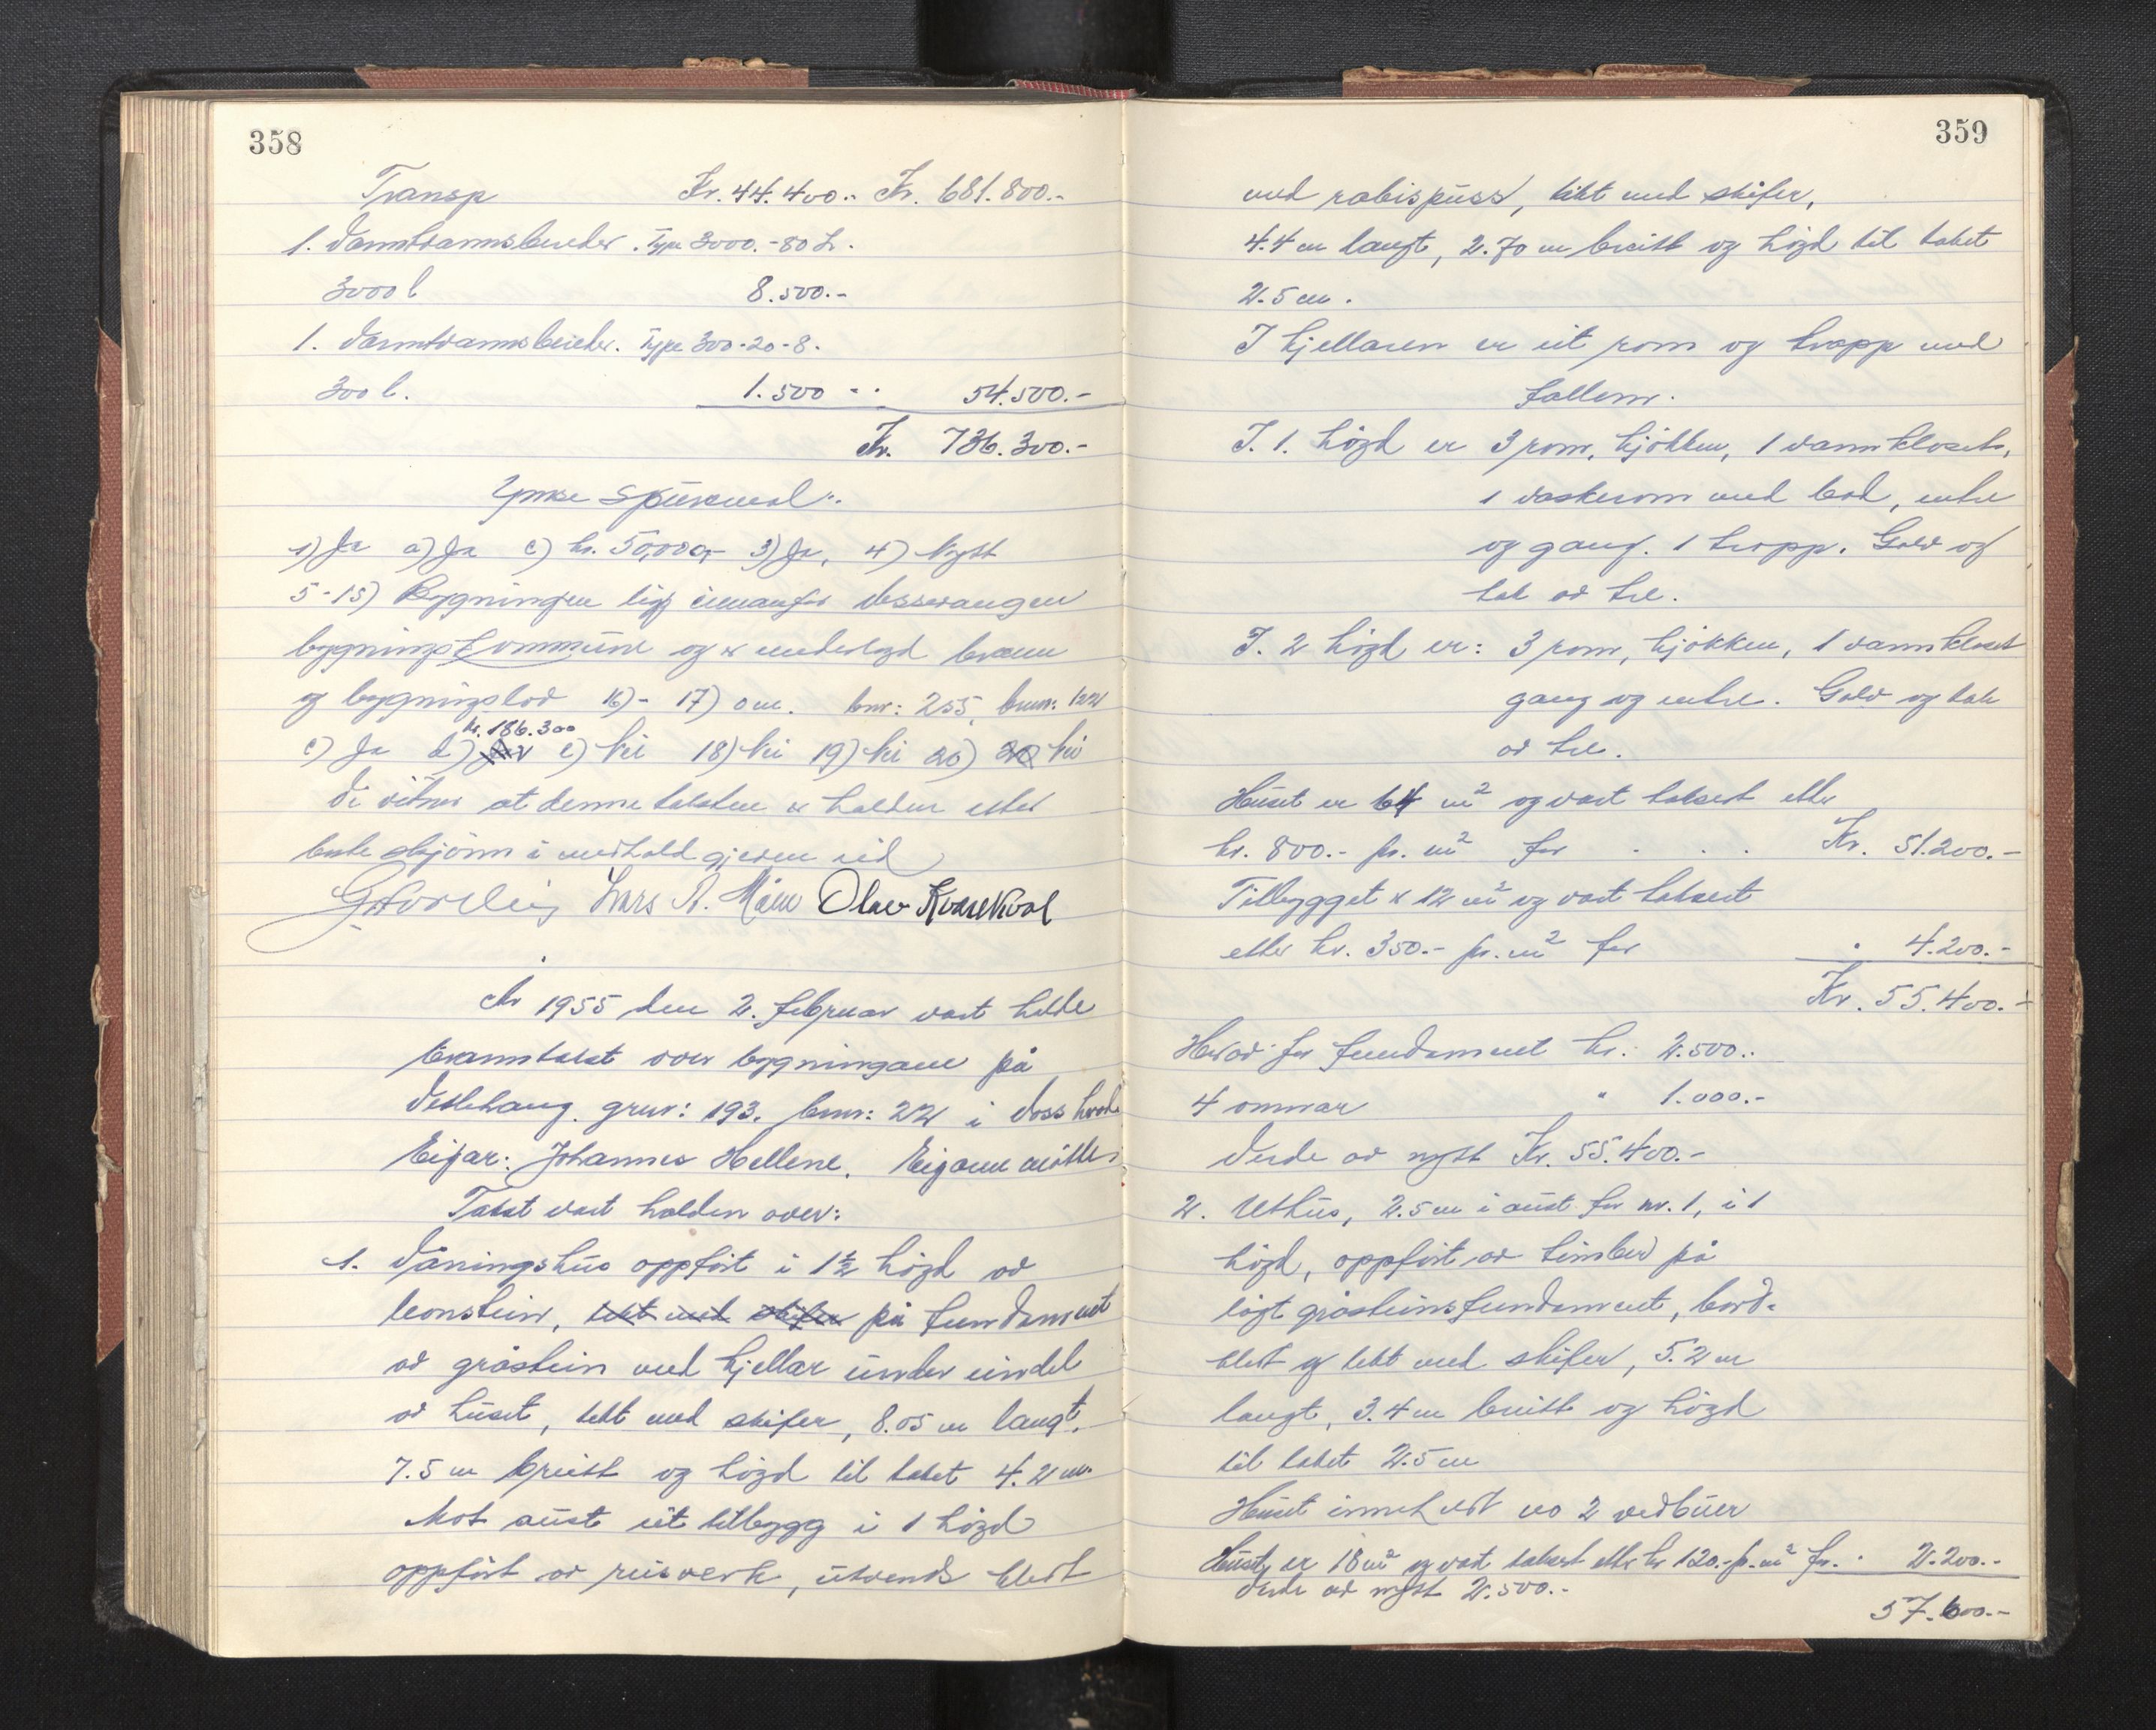 358
Transp Kr. 44.400.- Kr. 681.800.-
1. Varmtvannsbereder. Type 3000.-80 L.
3000 l 8.500.-
1. Varmtvannsbereder. Type 300-20-8.
300 l. 1.500 - . 54.500.-
Kr. 736.300.-
Ymse Spursmal:
1) Ja a) Ja c) kr. 50,000,- 3) Ja, 4) Nytt
5-15) Bygningen ligg innanfor Vossevangen
bygningskommune og er underlagd brann
og bygningslov 16)- 17) om. bnr: 255, bnr: 122
kr. 186.300
c) Ja d) e) Nei 18) Nei 19) Nei 20) Nei
Vi vitnar at denne taksten er halden etter
beste skjønn i medhald gjeven eid
Lars A. Møen Olav Kvarekval
År 1955 den 2. februar vart halde
branntakst over bygningane på
Vetlehaug. gnr: 193. bnr: 22 i Voss herad
Eigar: Johannes Hellene. Eigaren møtte.
Takst vart halden over:
1. Våningshus oppført i 1½ høgd av
leonstein, tekt med skifer på fundament
av gråstein med kjellar under eindel
av huset, tekt med skifer, 8.05 m langt,
7.5 m breitt og høgd til taket 4.2 m.
Mot aust eit tilbygg i 1 høgd
oppført av reisverk, utvends kledt
359
med rabispuss, tekt med skifer,
4.4 m langt, 2.70 m breitt og høgd til taket
2.5 m.
I kjellaren er eit rom og trapp med
fallem.
I. 1. høgd er 3 rom, kjøkken, 1 vannklosett,
1 vaskerom med bad, entre
og gang. 1 trapp. Golv og
tak av tre.
I. 2 høgd er: 3 rom, kjøkken, 1 vannklosett
gang og entre. Golv og tak
av tre.
Huset er 64 m² og vart taksert etter
kr. 800.- pr. m² for . . . Kr. 51.200.-
Tilbygget er 12 m² og vart taksert
etter kr. 350.- pr. m² for " 4.200.-
Kr. 55.400.-
Herav for fundament kr. 2.500.-
4 omnar " 1.000.-
Verde av nytt Kr. 55.400.-
2. Uthus, 2.5 m i aust for nr. 1, i 1
høgd, oppført av timber på
lågt gråsteinsfundament, bord-
kledt og tekt med skifer, 5.2 m
langt, 3.4 m breitt og høgd
til taket 2.5 m
Huset inneheld 2 vedbuer
Huset er 18 m² og vart taksert etter kr 120.- pr. m² for. . 2.200.-
Verde av nytt 2.500.-
57.600.-